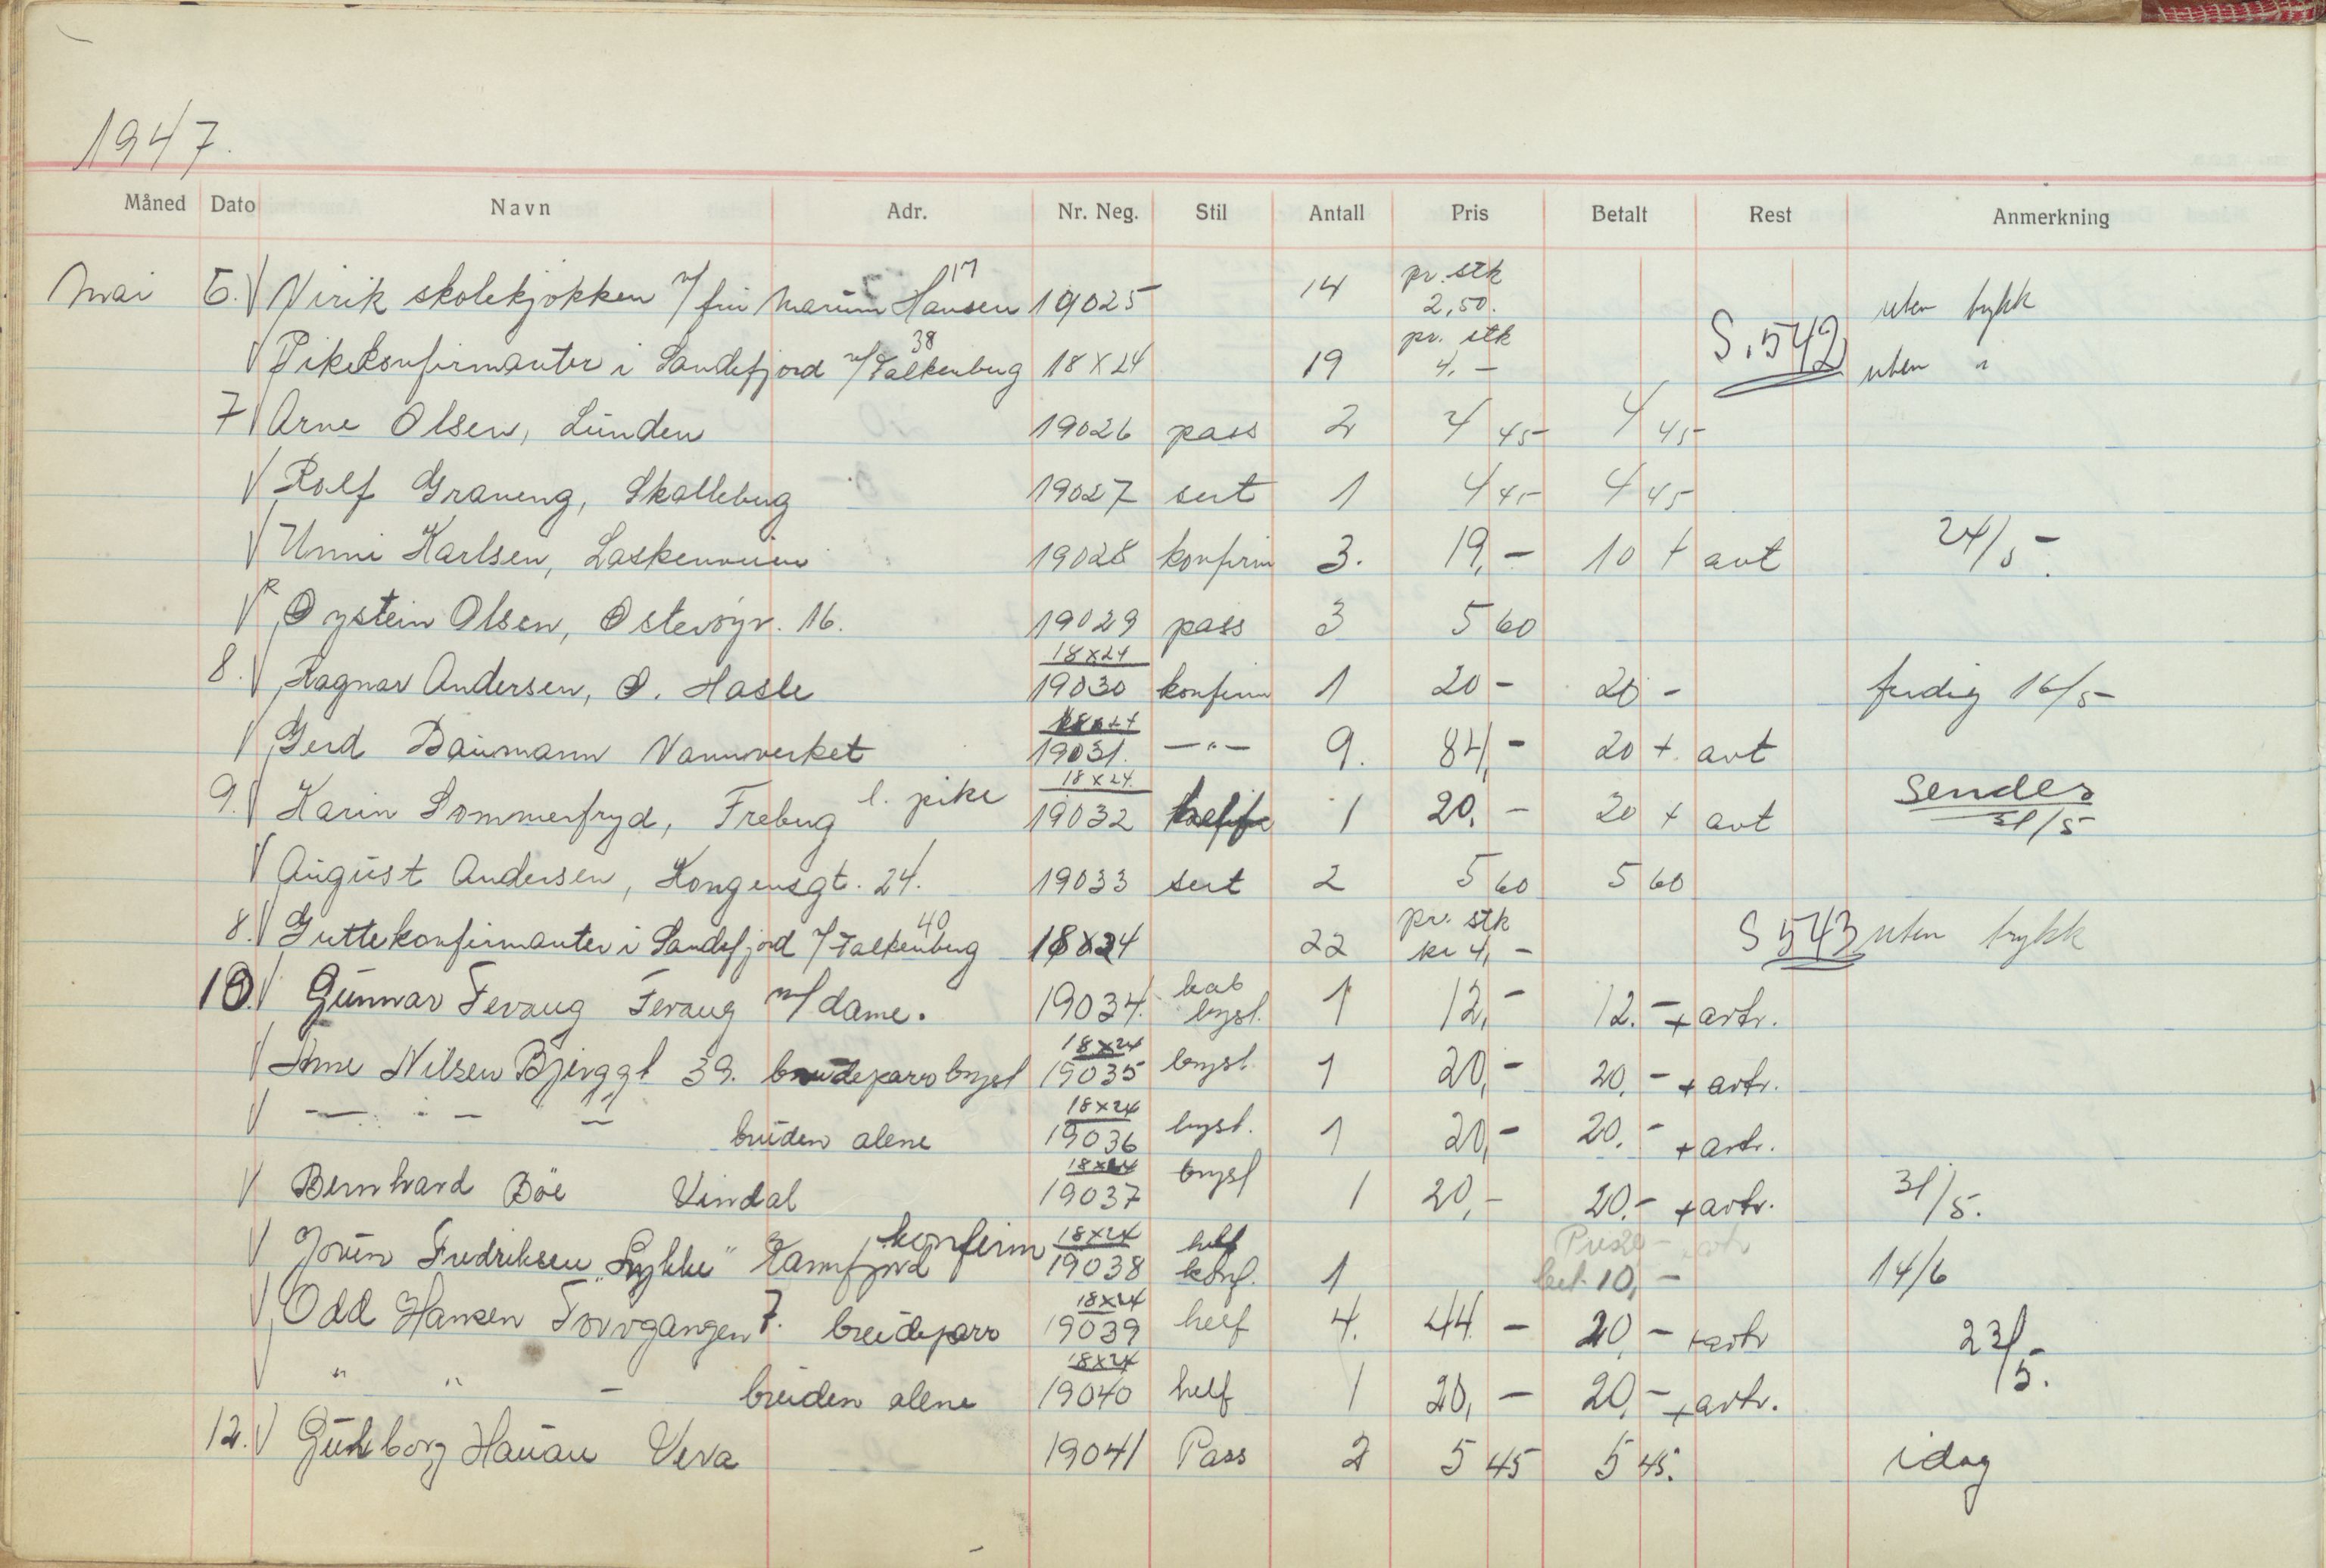 1947.
Måned Dato Navn Adr. Nr. Neg. Stil Antall Pris Betalt Rest Anmerkning
Mai 6. √ Virik skolekjøkken v/ fru Marum Hansen 117 19025 14 pr. stk 2,50. uten trykk
√ Pikekonfirmanter i Sandefjord v/ Falkenberg 38 18x24 19 pr. stk 4,- S. 542 uten "
7 √ Arne Olsen, Lunden 19026 pass 2 4 45 4 45
√ Rolf Graveng, Skalleberg 19027 sert 1 4 45 4 45
√ Unni Karlsen, Laskenveien 19028 konfirm 3. 19,- 10 + avt 24/5-.
√ R Øystein Olsen, Østerøyv. 16. 19029 pass 3 5 60
8. √ Ragnar Andersen, Ø. Hasle 18x24 19030 konfirm 1 20- 20- ferdig 16/5-
√ Gerd Baumann Vannverket 18x24 19031. -"- 9. 84,- 20 + avt
9. √ Karin Sommerfryd, Freberg l. pike 18x24. 19032 1 20,- 20 + avt Sendes 31/5
√ August Andersen, Kongensgt. 24. 19033 sert 2 5 60 5 60
8. √ Guttekonfirmanter i Sandefjord v/ Falkenberg 40 18x24 22 pr. stk kr 4,- S 543 uten trykk
10. √ Gunnar Fevang Fevang m/ dame. 19034. kab bryst. 1 12,- 12.- + avtr.
√ Arne Nilsen Bjerggt 39. brudeparr bryst 18x24 19035 bryst. 1 20,- 20,- + avtr.
√ - " - " bruden alene 18x24 19036 bryst. 1 20,- 20.- + avtr.
√ Bernhard Böe Vindal 18x24 19037 bryst 1 20,- 20.- + avtr. 31/5.
√ Jorun Fredriksen "Lykke" Kamfjord konfirm 18x24 19038 helf konf. 1 Pris 20- + avtr bet. 10,- 14/6
√ Odd Hansen Torvgangen 7. brudeparr 18x24 19039 helf 4. 44- 20,- + avtr 23/5.
√ " " - bruden alene 18x24 19040 helf 1 20,- 20,- + avtr.
12. √ Gunborg Hauan Vera 19041 Pass 2 5 45 5 45. idag